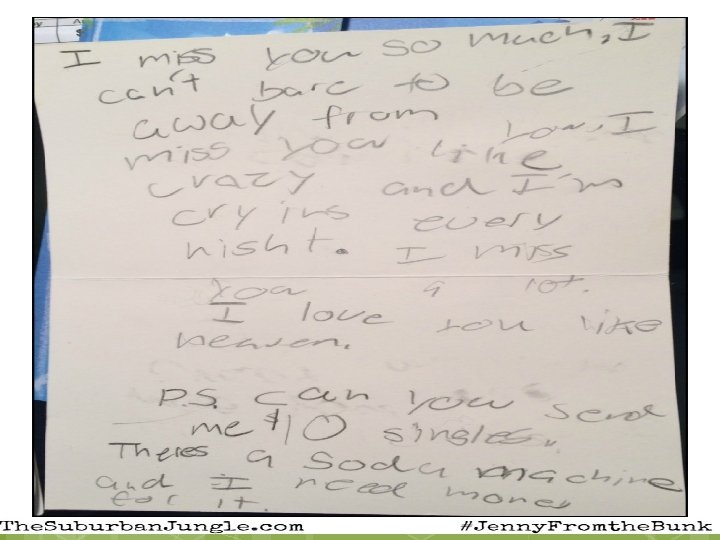 I miss you so much, I
can't barc to be
away from you, I
miss you like
crazy and I'm
crying every
night. I miss
you a lot.
I love you like
heaven.
P.S. can you send
me $10 singles.
Theres a soda machine
and I need money
for it.
TheSuburbanJungle.com #JennyFromtheBunk